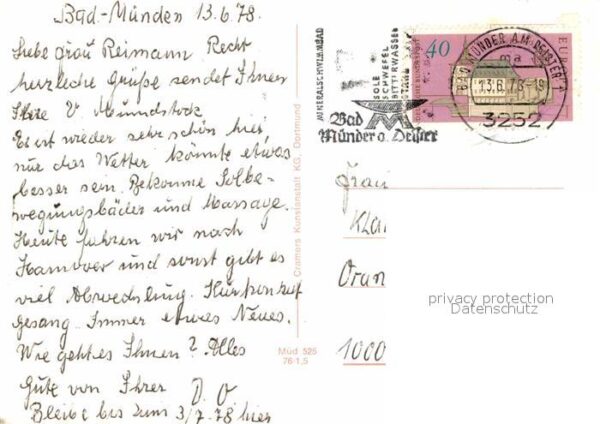 Bad-Münden 13.6.78.
Liebe Frau Reimann Recht
herzliche Grüße sendet Ihnen
Ihre V. Mundstock
Es ist wieder sehr schön hier,
nur das Wetter könnte etwas
besser sein. Bekomme Solbe-
wegungsbäder und Massage.
Heute fahren wir nach
Hannover und sonst gibt es
viel Abwechslung.
Gesang. Immer etwas Neues.
Wie geht es Ihnen? Alles
Gute von Ihrer D. O
Bleibe bis zum 3/7.78 hier
Cramers Kunstanstalt KG, Dortmund
Müd 525
76·1,5
MINERALSCHWIMMBAD
SOLE
SCHWEFEL
BITTERWASSER
Bad
Münder a. Deister
40
EUROPA
BAD MÜNDER AM DEISTER 1
13.6.78-19
ma
3252
Frau
Kla
Oran
1000
privacy protection
Datenschutz